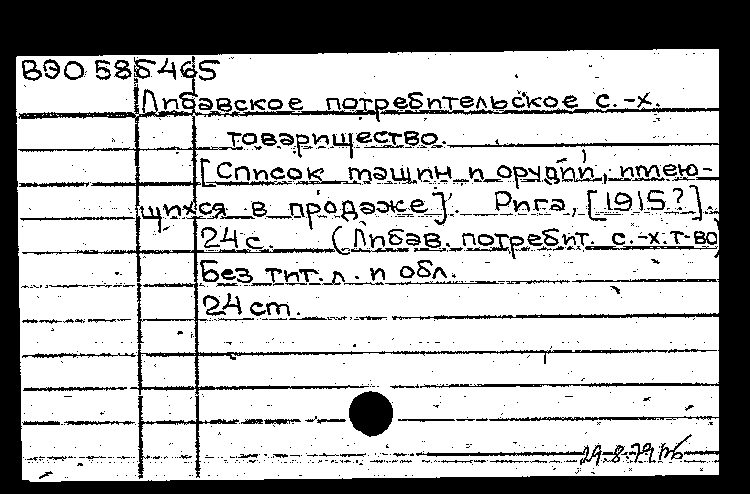 ВЭО 585465
Либавское потребительское с.-х.
товарищество.
[Список машин и орудий, имею-
щихся в продаже]. Рига, [1915?].
24 с. (Либав. потребит. с.-х. т-во)
Без тит. л. и обл.
24 см.
29.8.79